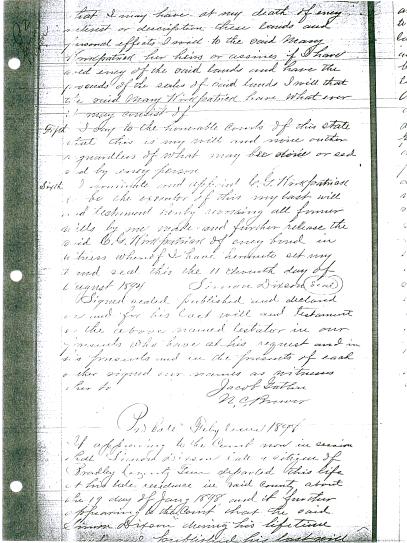 that I may have at my death of eney
interest or description these lands and
personal effects I will to the said Meany
Kirkpatrick her heirs or assines if I have
ed eney of the said lands and have the
of the sales of said lands I will that
the said Meany Kirkpatrick have what ever
may consist of
Fifth I Say to the honerable Courts of this State
that this is my will and none other
regardless of what may bee done or sed
d by eney person
Sixth I nominate and appoint C. G. Kirkpatrick
be the executor of this my last will
and testament revoking all former
wills by me made and further release the
said C. G. Kirkpatrick of eney bond in
witness whereof I have hereunto set my
hand and seal this the 11 Eleventh day of
August 1894 Simeon Dixson (Seal)
Signed sealed published and declared
as and for his last will and testament
the above named testator in our
presents who have at his request and in
his presents and in the presents of each
other signed our names as witnesses
Jacob
N. C. Brewer
Probate 1898
It appearing to the Court now in session
that Simeon Dixson late a citizen of
Bradley County Tenn departed this life
at his late residence in said county about
the 19 day of Jany 1898 and it further
appearing to the Court that the said
Simeon Dixson during his lifetime
published his last will